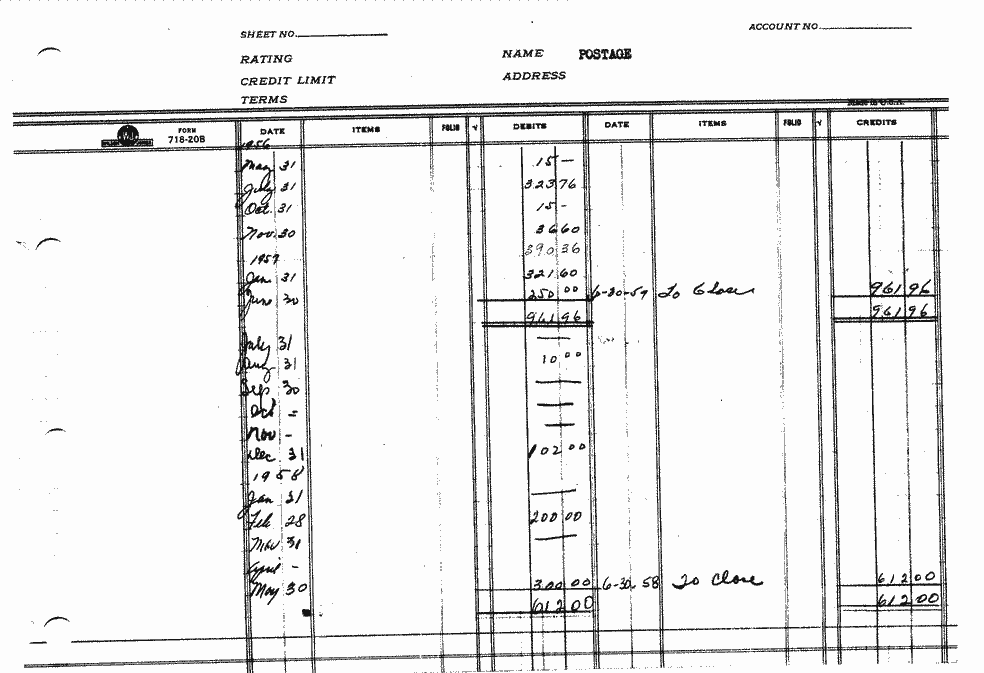 SHEET NO. ACCOUNT NO.
RATING NAME POSTAGE
CREDIT LIMIT ADDRESS
TERMS
MADE IN U.S.A.
FORM 718-20B DATE ITEMS FOLIO √ DEBITS DATE ITEMS FOLIO √ CREDITS
1956
May 31 15 —
July 31 323 76
Oct. 31 15 -
Nov. 30 36 60
390 36
1957
Jan 31 321 60
June 30 250 00 6-30-57 To Close 961 96
961 96 961 96
July 31 —
Aug 31 10 00
Sep 30 —
Oct - —
Nov - —
Dec. 31 102 00
1958
Jan 31 —
Feb 28 200 00
Mar 31 —
April -
May 30 300 00 6-30-58 To Close 612 00
612 00 612 00